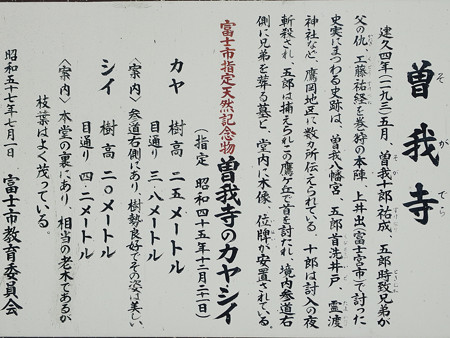 曽我寺
そがでら
建久四年(一一九三)五月、曽我十郎祐成、五郎時致兄弟が
父の仇、工藤祐経を巻狩の本陣、上井出(富士宮市)で討った
史実にまつわる史跡は、曽我八幡宮、五郎首洗井戸、霊渡
神社など、鷹岡地区に数カ所伝えられている。十郎は討入の夜
斬殺され、五郎は捕えられこの鷹ケ丘で首を討たれ、境内参道右
側に兄弟を葬る墓と、堂内に木像、位牌が安置されている。
富士市指定天然記念物 曽我寺のカヤ・シイ
(指定 昭和四十五年十二月二一日)
カヤ 樹高 二五メートル
目通り 三・八メートル
〈案内〉参道右側にあり、樹勢良好でその姿は美しい。
シイ 樹高 二〇メートル
目通り 四・二メートル
〈案内〉本堂の裏にあり、相当の老木であるが
枝葉はよく茂っている。
昭和五十七年七月一日 富士市教育委員会